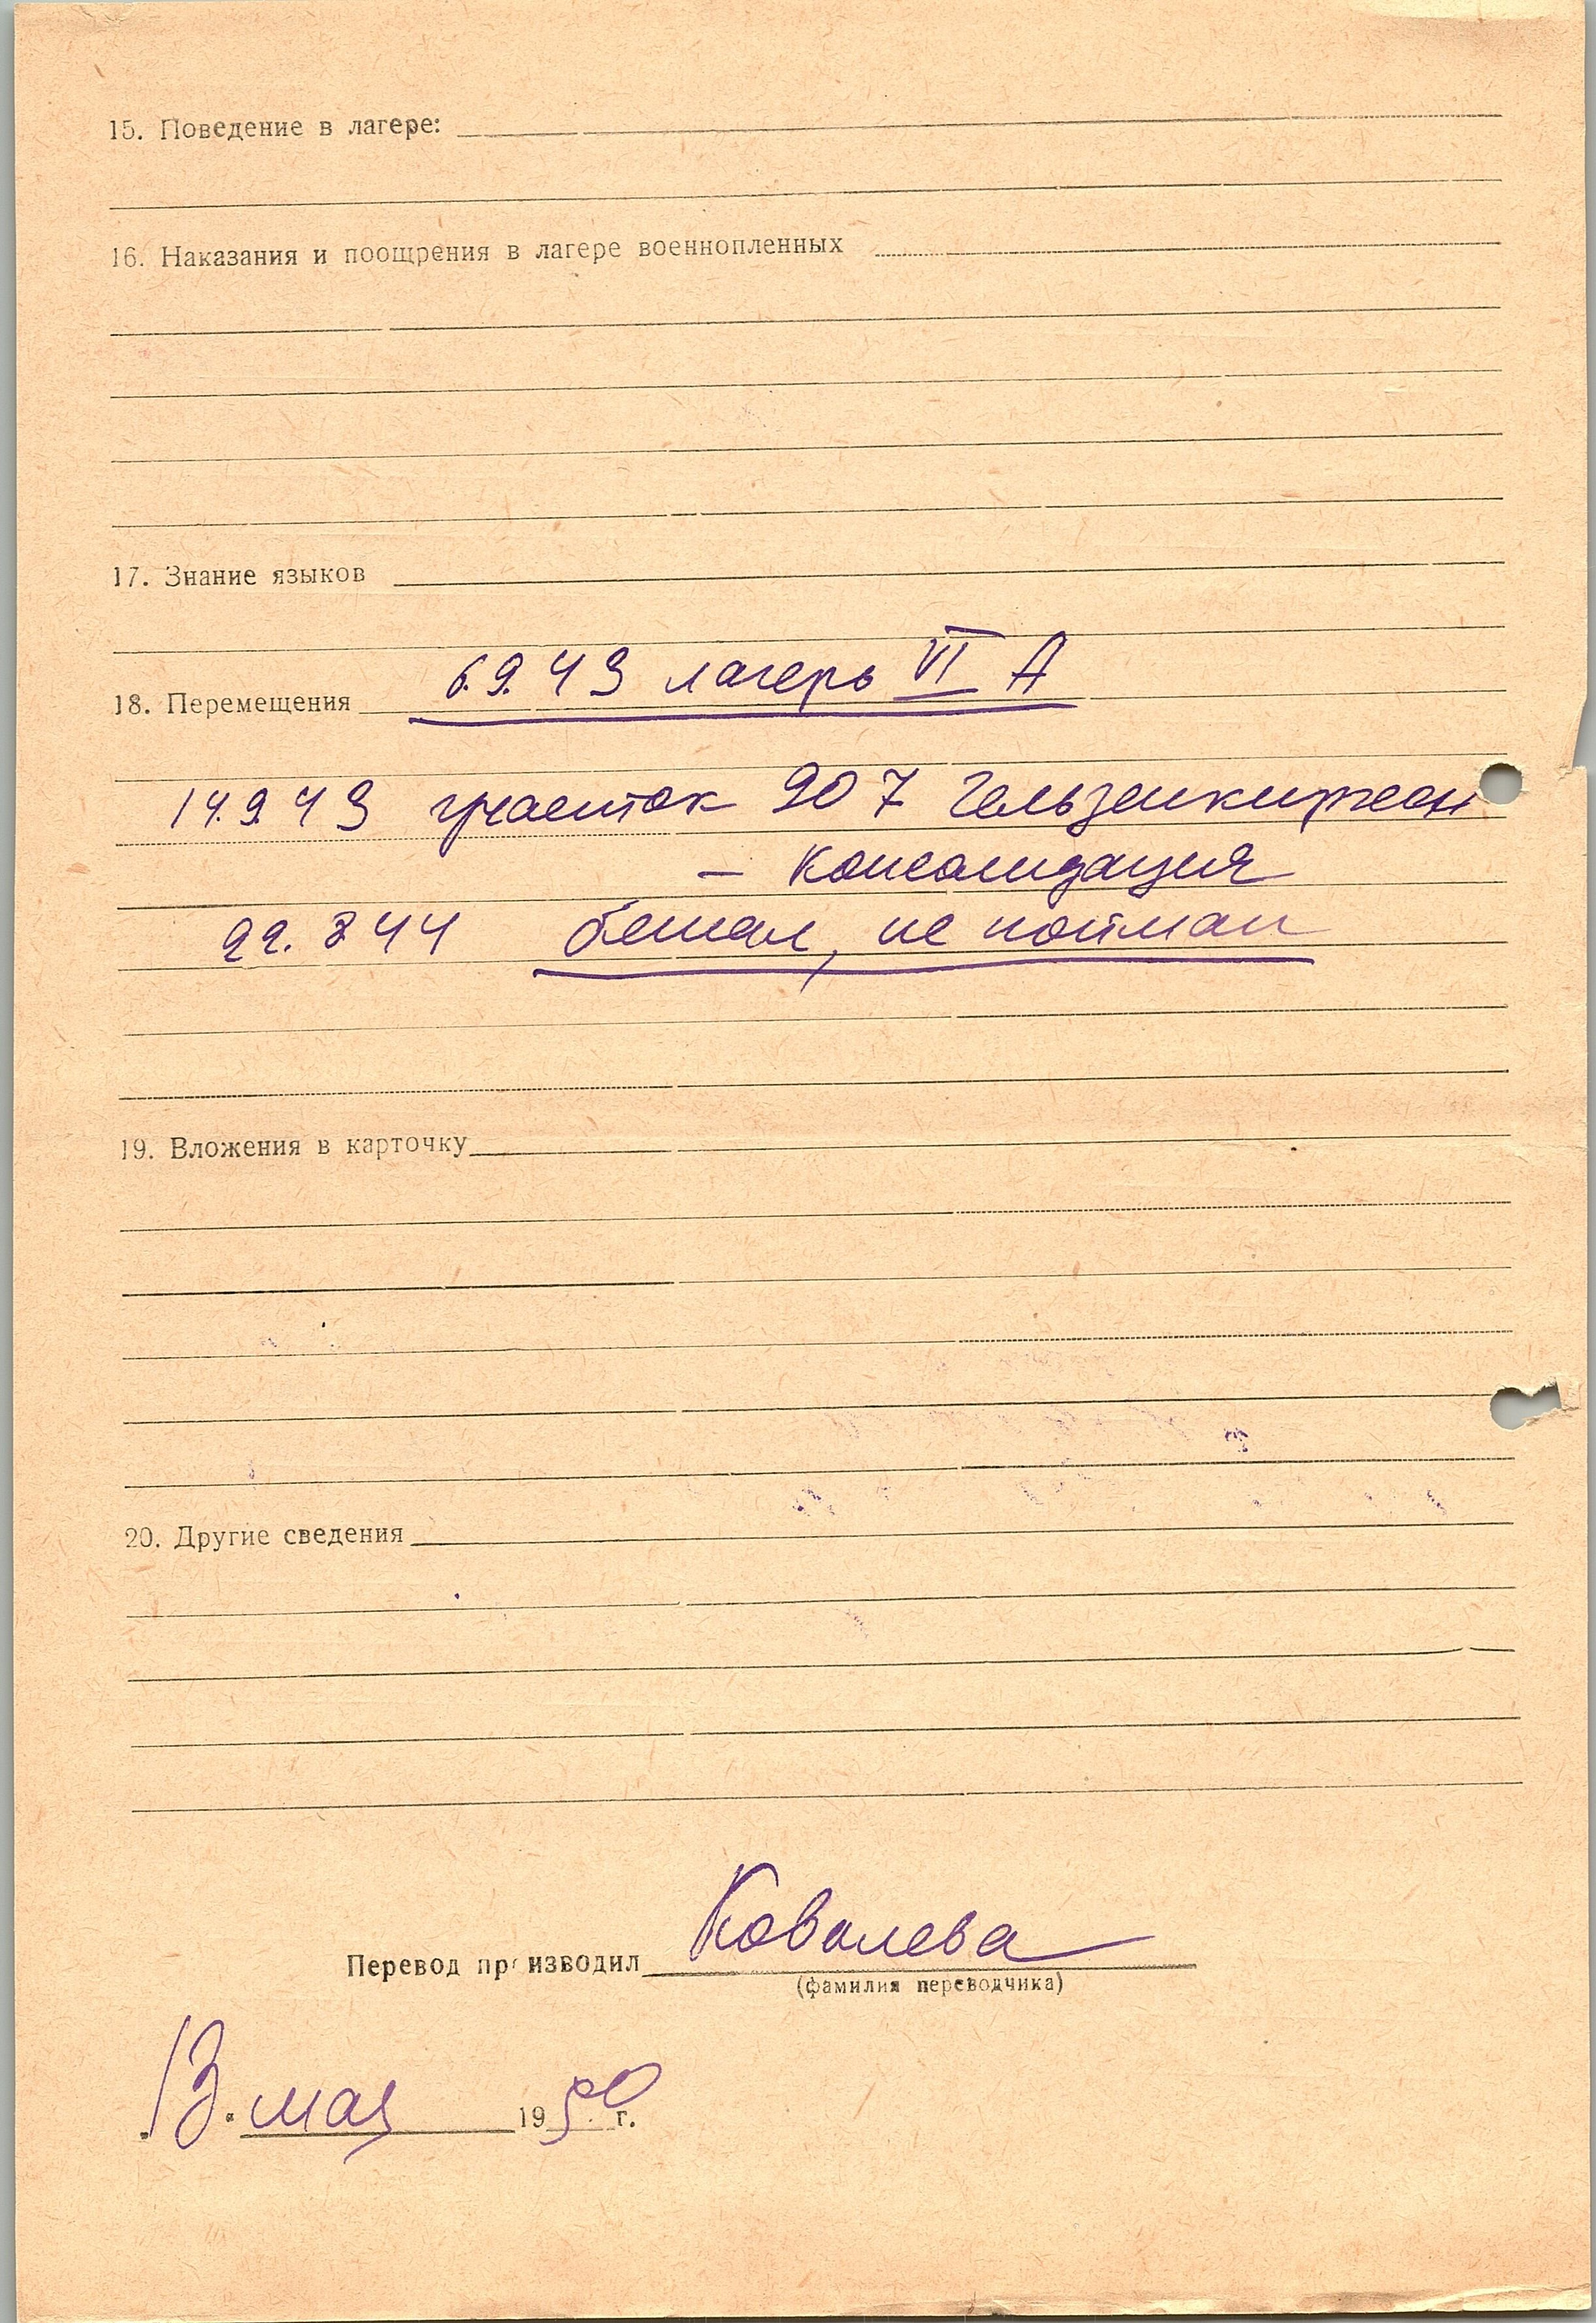 15. Поведение в лагере:
16. Наказания и поощрения в лагере военнопленных
17. Знание языков
18. Перемещения 6.9.43 лагерь VI A
14.9.43 участок 907 Гельзенкирхен
– Консолидация
22. 8 44 бежал, не пойман
19. Вложения в карточку
20. Другие сведения
Перевод производил Ковалева
(фамилия переводчика)
13. мая 1950 г.